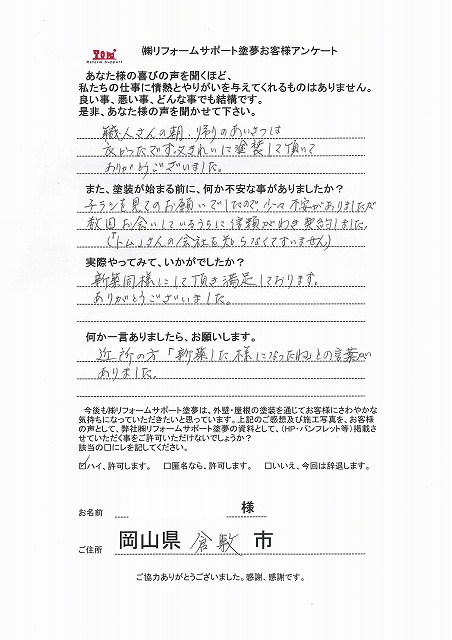 TOM
Reform Support
㈱リフォームサポート塗夢お客様アンケート
あなた様の喜びの声を聞くほど、
私たちの仕事に情熱とやりがいを与えてくれるものはありません。
良い事、悪い事、どんな事でも結構です。
是非、あなた様の声を聞かせて下さい。
職人さんの朝、帰りのあいさつは
良かったです。又きれいに塗装して頂いて
ありがとうございました。
また、塗装が始まる前に、何か不安な事がありましたか？
チラシを見てのお願いでしたので少々不安がありましたが
数回お会いしているうちに信頼がわき契約しました。
(「トム」さんの会社を知らなくてすいません)
実際やってみて、いかがでしたか？
新築同様にして頂き満足しております。
ありがとうございました。
何か一言ありましたら、お願いします。
近所の方「新築した様になったね」との言葉が
ありました。
今後も㈱リフォームサポート塗夢は、外壁・屋根の塗装を通じてお客様にさわやかな
気持ちになっていただきたいと思っています。上記のご感想及び施工写真を、お客様
の声として、弊社㈱リフォームサポート塗夢の資料として、(HP・パンフレット等)掲載さ
せていただく事をご許可いただけないでしょうか？
該当の□にレを記してください。
☑ハイ、許可します。 □匿名なら、許可します。 □いいえ、今回は辞退します。
お名前 様
ご住所 岡山県 倉敷 市
ご協力ありがとうございました。感謝、感謝です。